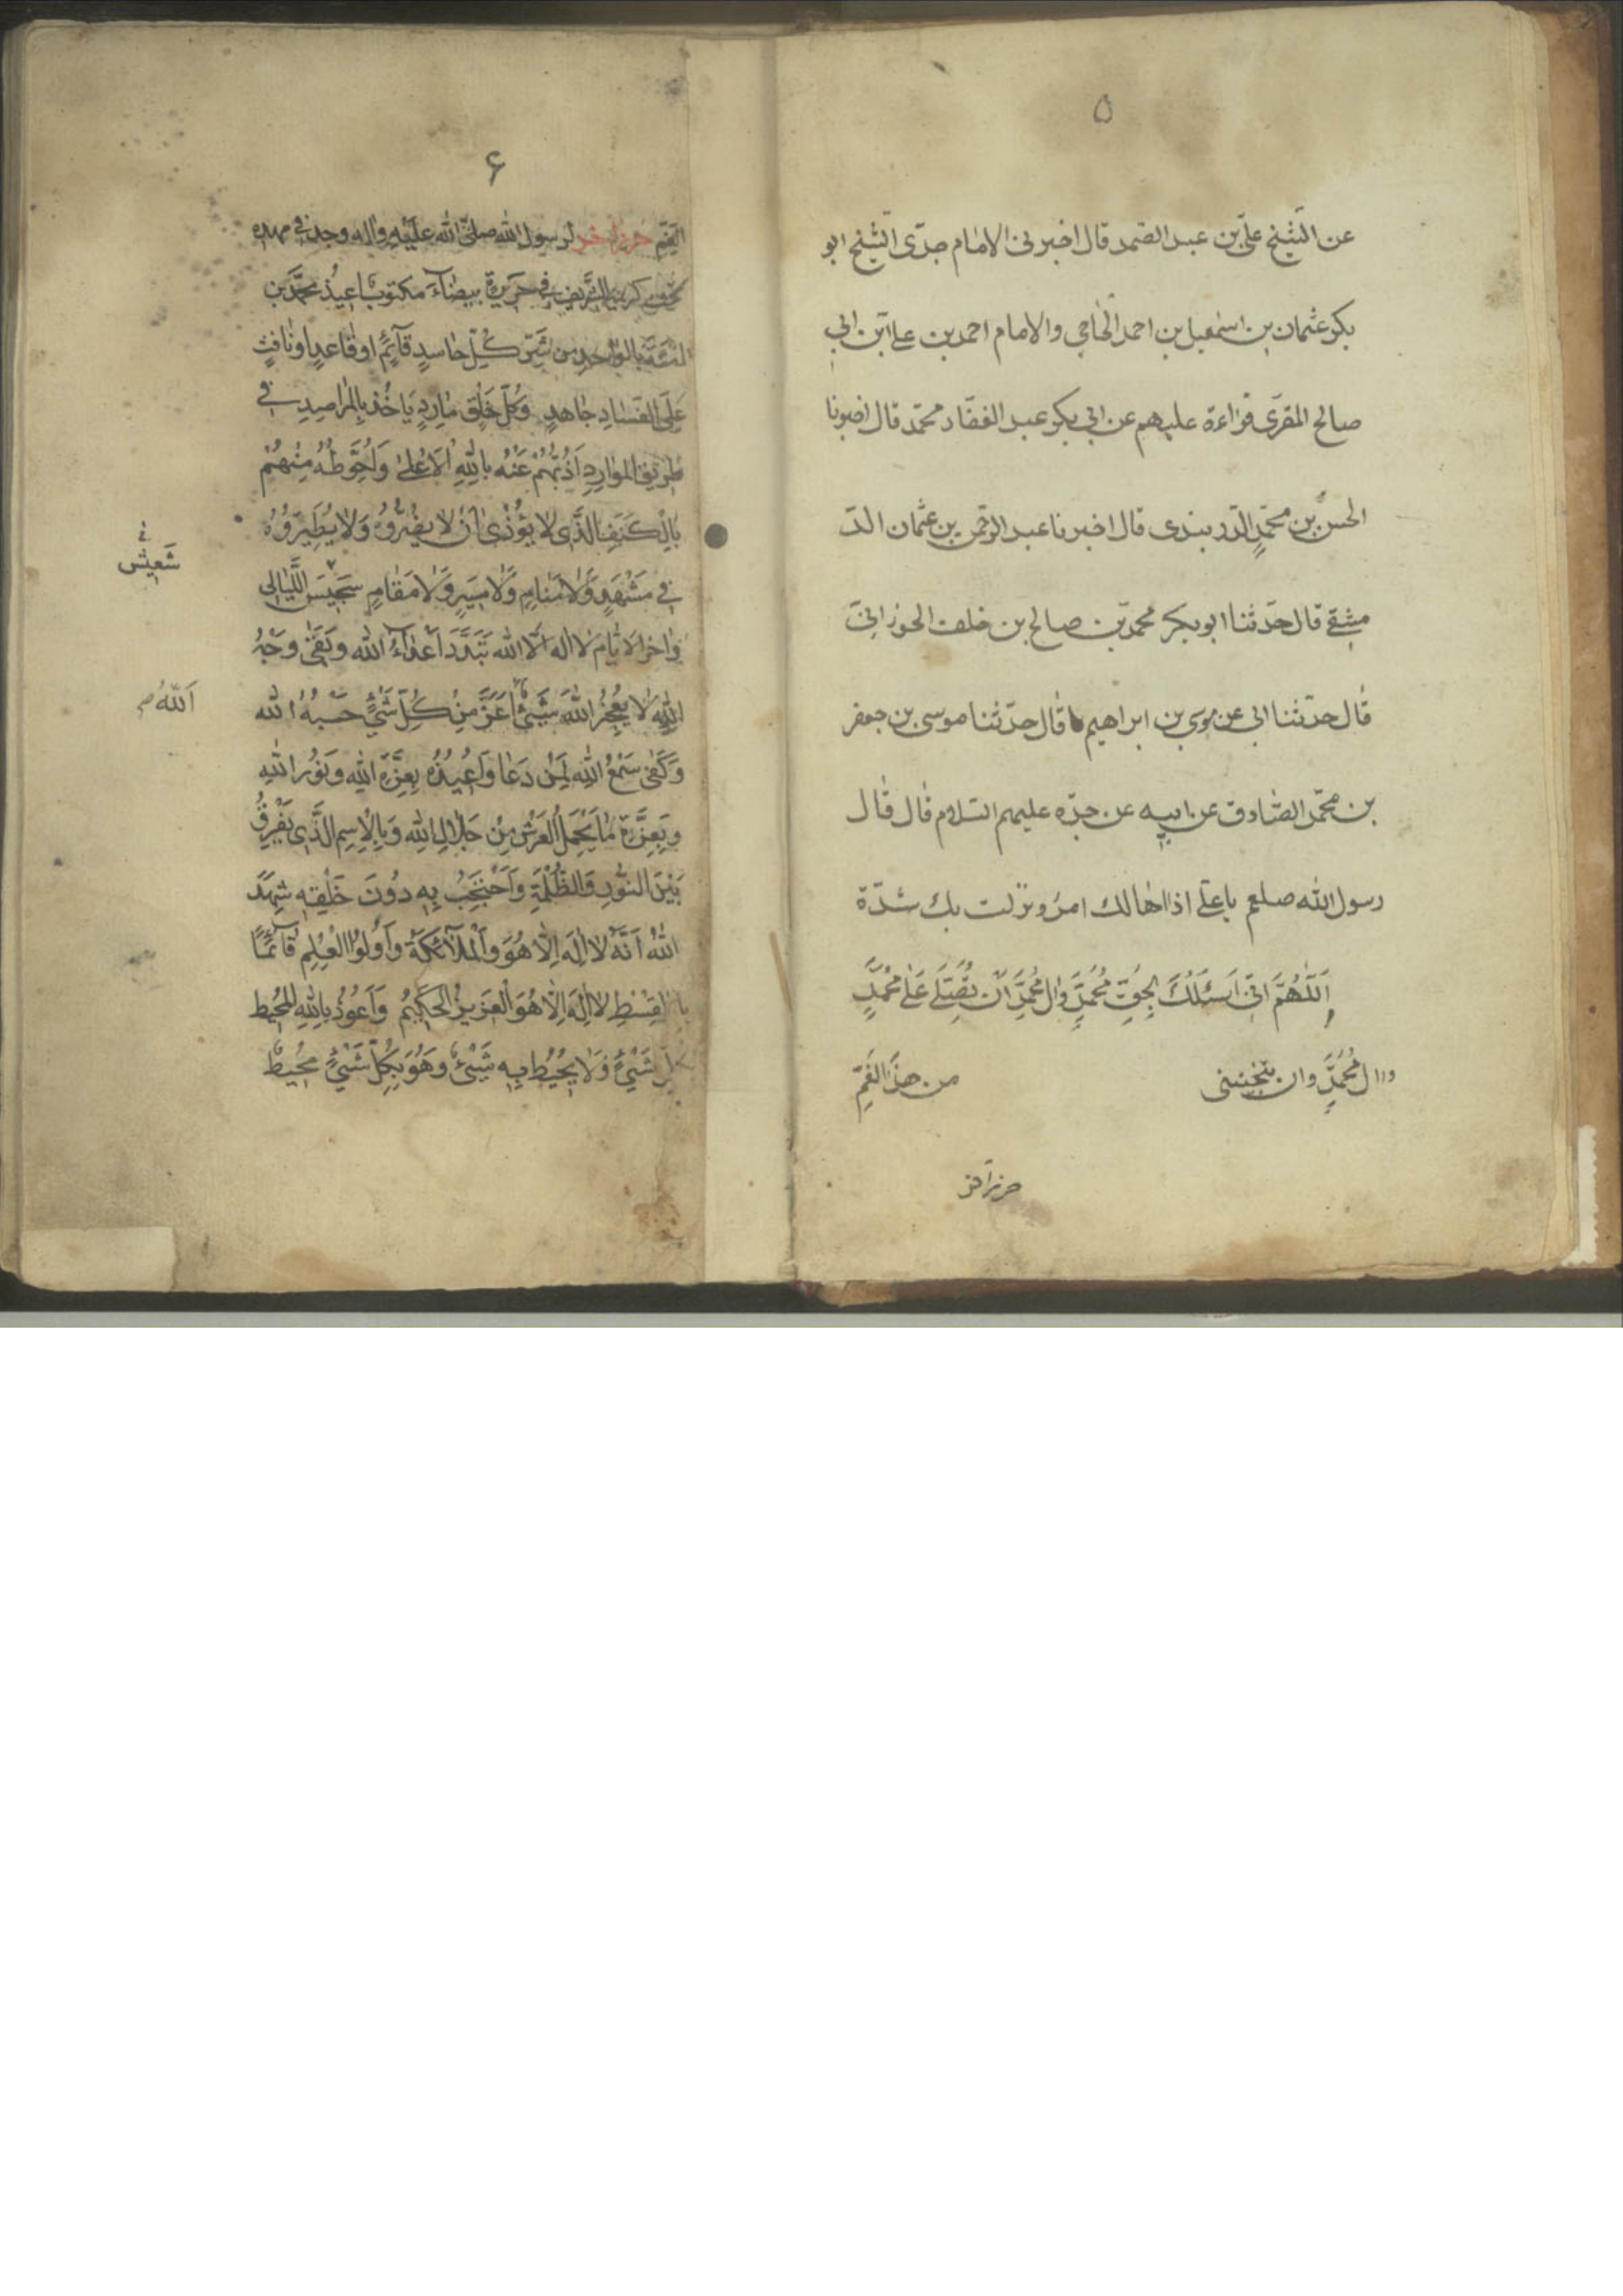 ٥
عن الشيخ علي بن عبد الصمد قال اخبرنى الامام جدّى الشيخ ابو
بكر عثمان بن اسمعيل بن احمد الحاجي والامام احمد بن على ابن ابي
صالح المقرى قراءة عليهم عن ابي بكر عبد الغفار محمّد قال اخبرنا
الحسن بن محمّد الدربندى قال اخبرنا عبد الرحمن بن عثمان الد
مشقي قال حدّثنا ابو بكر محمد بن صالح بن خلف الحوزانىّ
قال حدّثنا ابي عن موسى بن ابراهيم قال حدّثنا موسى بن جعفر
بن محمّد الصّادق عن ابيه عن جدّه عليهم السّلام قال قال
رسول الله صلعم يا علي اذا هالك امرٌ ونزلت بك شدّة
اَللّٰهُمَّ اِنّى اَسْئَلُكَ بِحَقِّ مُحَمَّدٍ وَال مُحَمَّدٍ اَن تُصَلّىَ عَلٰى مُحَمَّدٍ
وال مُحَمَّدٍ وان تنجينى من هذَا الغَمِّ
حرز آخر
۶
الغَمِّ حرز اخر لرسول الله صلّى الله عليه واله وجد فى مهده
تحت كريمه الشريف في حَرِيرَةٍ بيضآءَ مكتوب اعيذ محمّد بن
امنَةَ بالواحدِ من شرّ كُلِّ حاسدٍ قآئمٍ او قاعدٍ او نافثٍ
عَلَى الفَسَادِ جاهدٍ وكُلِّ خَلْقٍ مارِدٍ يَاخُذ بِالمَراصِدِ في
طريق المَوارِدِ اَذُبُّهُمْ عَنْهُ بالله الاَعْلىٰ وَاَحُوطُهُ مِنْهُمْ
بِالكَنَفِ الَّذى لا يُؤْذىٰ اَنْ لا يضُرُّوهُ وَلا يُطيرُوهُ
في مَشْهَدٍ وَلا مَنامٍ وَلا مَسيرٍ وَلا مَقامٍ سَجيسَ اللَّيالى
وَاخر الايّام لا اله الّا الله تَبَدَّدَ اَعْداءُ الله وبَقىَ وَجْهُ
اللهِ لا يُعْجِزُ اللهَ شَىْءٌ اللهُ اَعَزُّ مِنْ كُلِّ شَىْءٍ حَسْبُهُ الله
وَكَفىٰ سَمِعَ الله لِمَنْ دَعا وَاُعيذُهُ بِعِزَّةِ الله ونُورِ اللهِ
وبِعِزَّةِ ما يَحْمِلُ العَرْشُ مِنْ جَلالِ الله وَبِالاِسمِ الَّذى يَفْرِقُ
بَيْنَ النُّورِ وَالظُّلْمَةِ وَاحْتَجَبَ بِهِ دُونَ خَلْقِهِ شَهِدَ
اللهُ اَنَّهُ لا اِلٰهَ اِلّا هُوَ وَالْمَلآئكَةُ وَاُولُوا الْعِلْمِ قآئمًا
بِالقِسْطِ لا اِلٰهَ اِلّا هُوَ الْعَزيزُ الحَكيمُ وَاَعُوذُ بِاللهِ المُحيطِ
بكلّ شَىْءٍ وَلا يُحيطُ بِه شَىْءٌ وهُوَ بِكُلِّ شَىْءٍ مُحيطٌ
اَللهُ ص